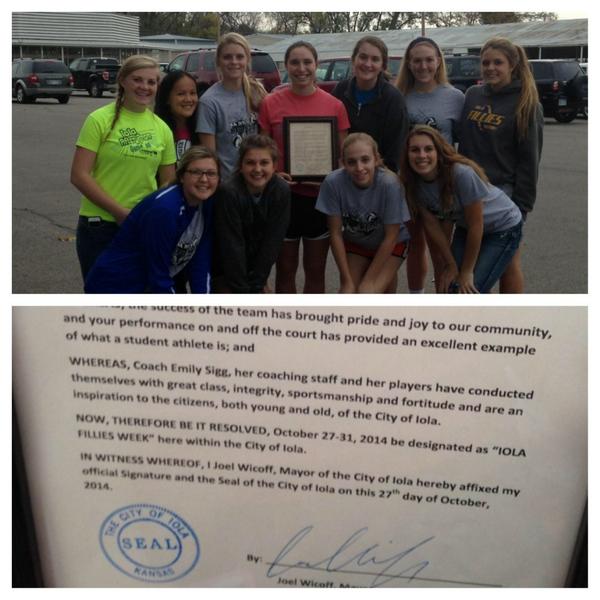 Iola
FILLIES
the success of the team has brought pride and joy to our community,
and your performance on and off the court has provided an excellent example
of what a student athlete is; and
WHEREAS, Coach Emily Sigg, her coaching staff and her players have conducted
themselves with great class, integrity, sportsmanship and fortitude and are an
inspiration to the citizens, both young and old, of the City of Iola.
NOW, THEREFORE BE IT RESOLVED, October 27-31, 2014 be designated as “IOLA
FILLIES WEEK” here within the City of Iola.
IN WITNESS WHEREOF, I Joel Wicoff, Mayor of the City of Iola hereby affixed my
official Signature and the Seal of the City of Iola on this 27th day of October,
2014.
THE CITY OF IOLA
SEAL
KANSAS
By:
Joel Wicoff,